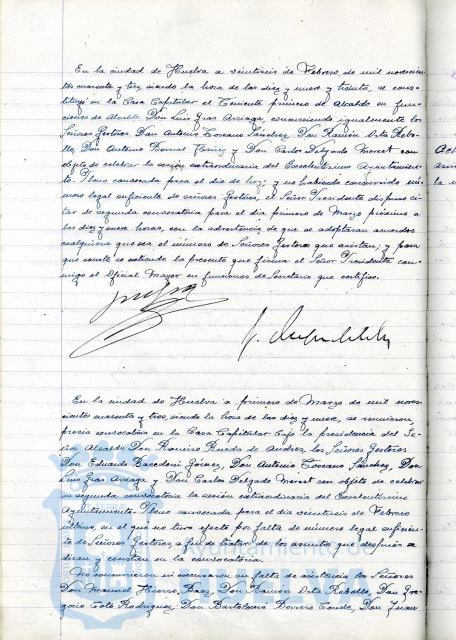 En la ciudad de Huelva a veintiseis de Febrero, de mil novecien-
tos cuarenta y tres, siendo la hora de las diez y nueve y treinta, se cons-
tituyó en la Casa Capitular el Teniente primero de Alcalde en fun-
ciones de Alcalde Don Luis Gras Arriaga, concurriendo igualmente los
Señores Gestores Don Antonio Toscano Sánchez, Don Ramón Orta Rebo-
llo, Don Antonio y Don Carlos Delgado Morset con
objeto de celebrar la sesión extraordinaria del Excelentísimo Ayuntamien-
to Pleno convocada para el día de hoy; y no habiendo concurrido nú-
mero legal suficiente de señores Gestores, el Señor Presidente dispuso ci-
tar de segunda convocatoria para el día primero de Marzo próximo a
las diez y nueve horas, con la advertencia de que se adoptaran acuerdos
cualquiera que sea el número de Señores Gestores que asistan; y para
que conste se extiende la presente que firma el Señor Presidente con-
migo el Oficial Mayor en funciones de Secretario que certifico.
En la ciudad de Huelva a primero de Marzo de mil nove-
cientos cuarenta y tres, siendo la hora de las diez y nueve, se reunieron
previa convocatoria en la Casa Capitular bajo la presidencia del Se-
ñor Alcalde Don Ramiro Rueda de Andrés, los Señores Gestores
Don Eduardo Gómez, Don Antonio Toscano Sánchez, Don
Luis Gras Arriaga y Don Carlos Delgado Morset con objeto de celebrar
en segunda convocatoria la sesión extraordinaria del Excelentísimo
Ayuntamiento Pleno convocada para el día veintiseis de Febrero
último, en el que no tuvo efecto por falta de número legal suficien-
te de Señores Gestores, a fin de tratar de los asuntos que después se
diran y constan en la convocatoria.
No concurrieron ni excusaron su falta de asistencia los Señores
Don Manuel Hierro Báez, Don Ramón Orta Rebollo, Don Gre-
gorio Rodriguez, Don Bartolomé Conde, Don Juan
Ayuntamiento de
HUELVA